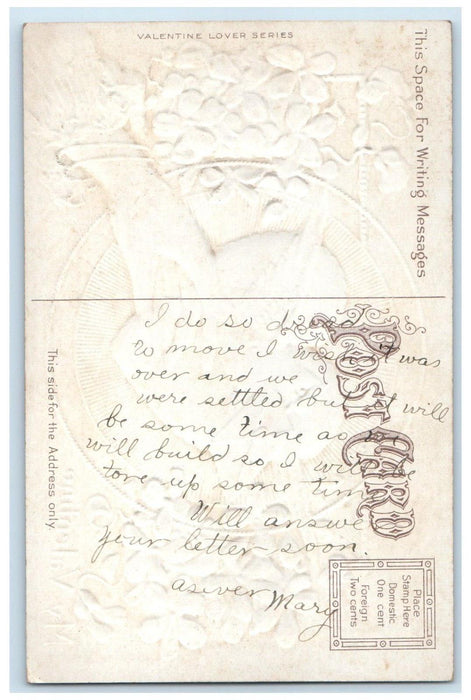 VALENTINE LOVER SERIES
This Space For Writing Messages
I do so dread
to move I wish it was
over and we
were settled but it will
be some time as we
will build so I will be
tore up some time
Will answe
your letter soon.
as ever Mary
This side for the Address only.
POST CARD
Place
Stamp Here
Domestic
One cent
Foreign
Two cents